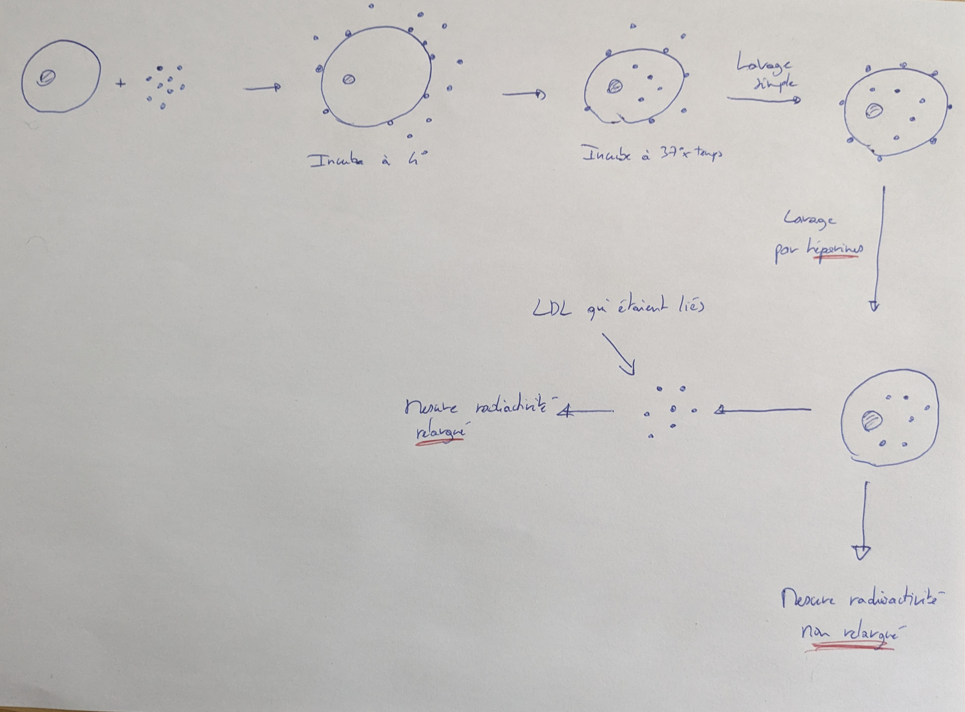 +
Incube à 4°
Incube à 37° x temps
Lavage
simple
Lavage
par héparines
LDL qui étaient liés
Mesure radiactivité
relargué
Mesure radioactivité
non relargué